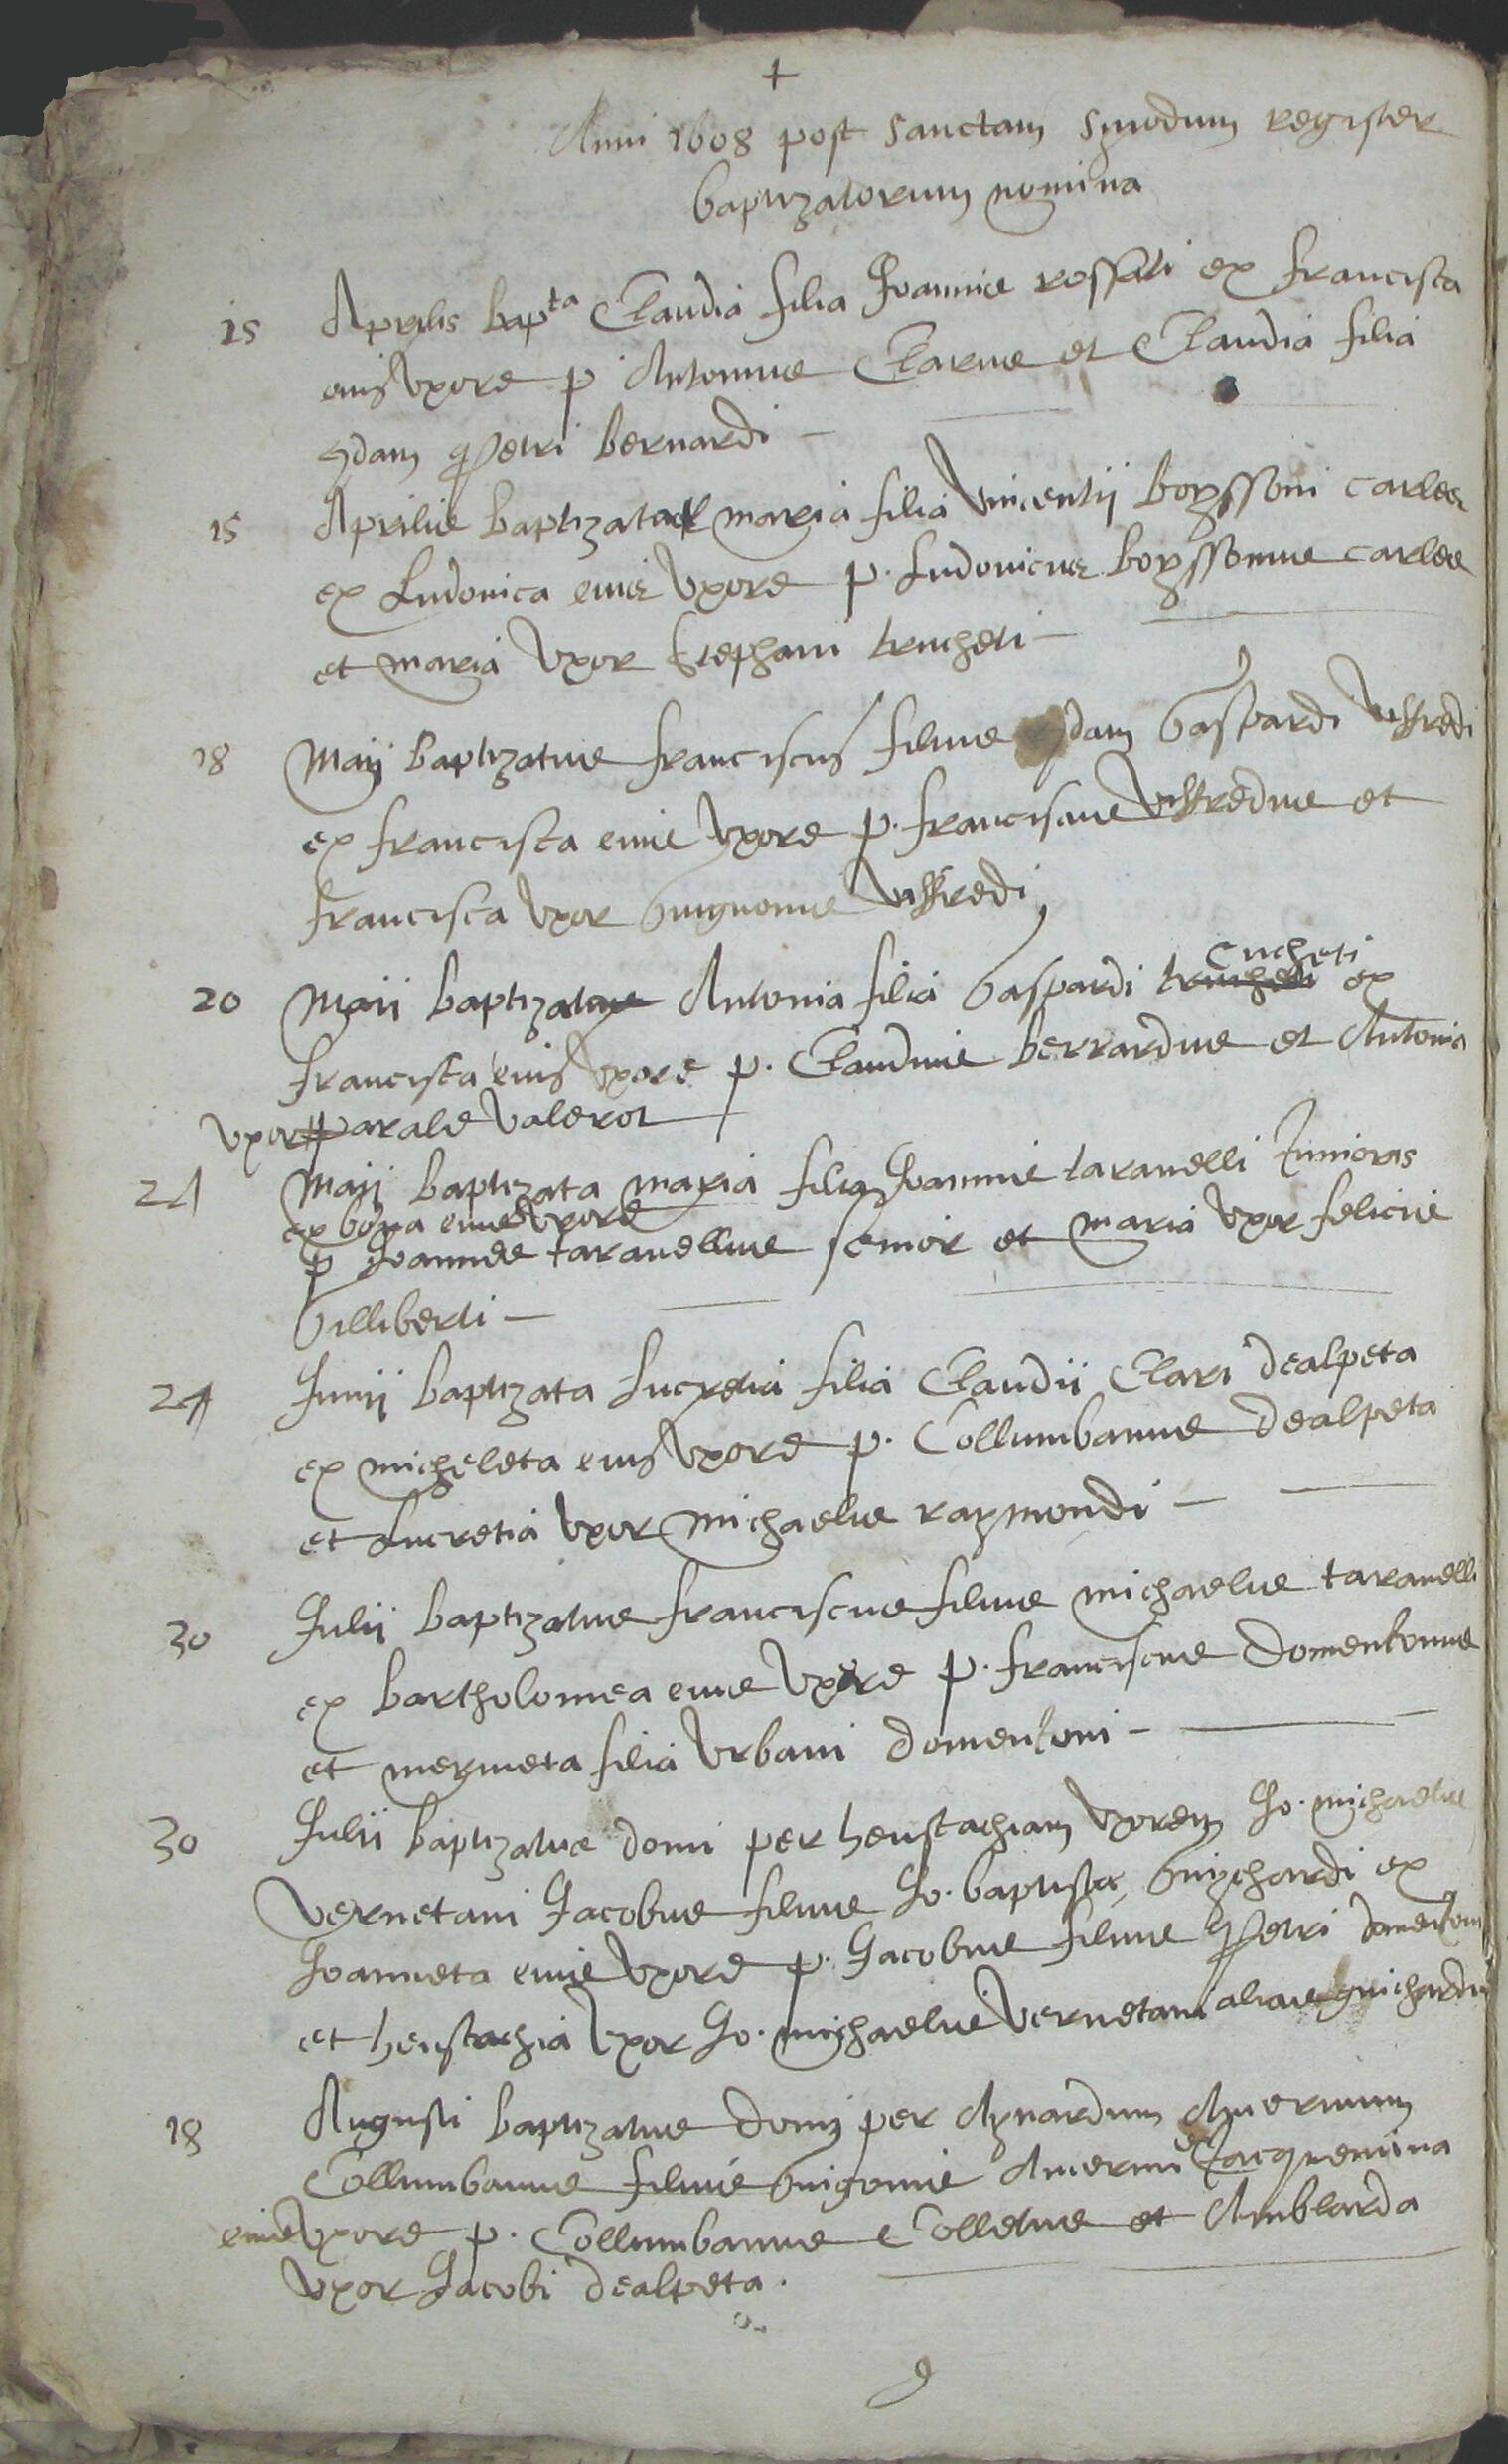 +
Anni 1608 post sanctam synodum register
baptizatorum nomina
15 Aprilis bapta Claudia filia Joannis rosseti ex francisca
eius uxore p Antonius Clarus et Claudia filia
qdam Petri bernardi -
15 Aprilis baptizata maria filia Vincentii boyssoni carles
ex Ludovica eius uxore p. Ludovicus boyssonus carles
et maria uxor Stephani trucheti -
18 Maii baptizatus franciscus filius qdam Gaspardi Viffredi
ex francisca eius uxore p. franciscus Viffredus et
francisca uxor Guigonis Viffredi
20 Maii baptizata Antonia filia Gaspardi trucheti cucheti ex
francisca eius uxore p. Claudius berrardus et Antonia
uxor parale Valerot
21 Maii baptizata maria filia Joannis taravelli Junioris
ex bona eius uxore
p Joannes taravellus senior et maria uxor felicis
Gilliberti -
24 Junii baptizata Lucretia filia Claudii Clari dealpeta
ex micheleta eius uxore p. Collumbanus dealpeta
et Lucretia uxor michaelis raymondi -
30 Julii baptizatus franciscus filius michaelis taravelli
ex bartholomea eius uxore p. franciscus domentonus
et mermeta filia Urbani domentoni -
30 Julii baptizatus domi per heustachiam uxorem Jo. michaelis
Vernetani Jacobus filius Jo. baptista Guichardi ex
Joanneta eius uxore p. Jacobus filius Petri domentoni
et heustachia uxor Jo. michaelis Vernetani alias guichardi
18 Augusti baptizatus domi per Aynardum Avernum
Collumbanus filius Guigonis Averni e Jacquemina
eius uxore p. Collumbanus Colletus et Amblarda
uxor Jacobi dealpeta.